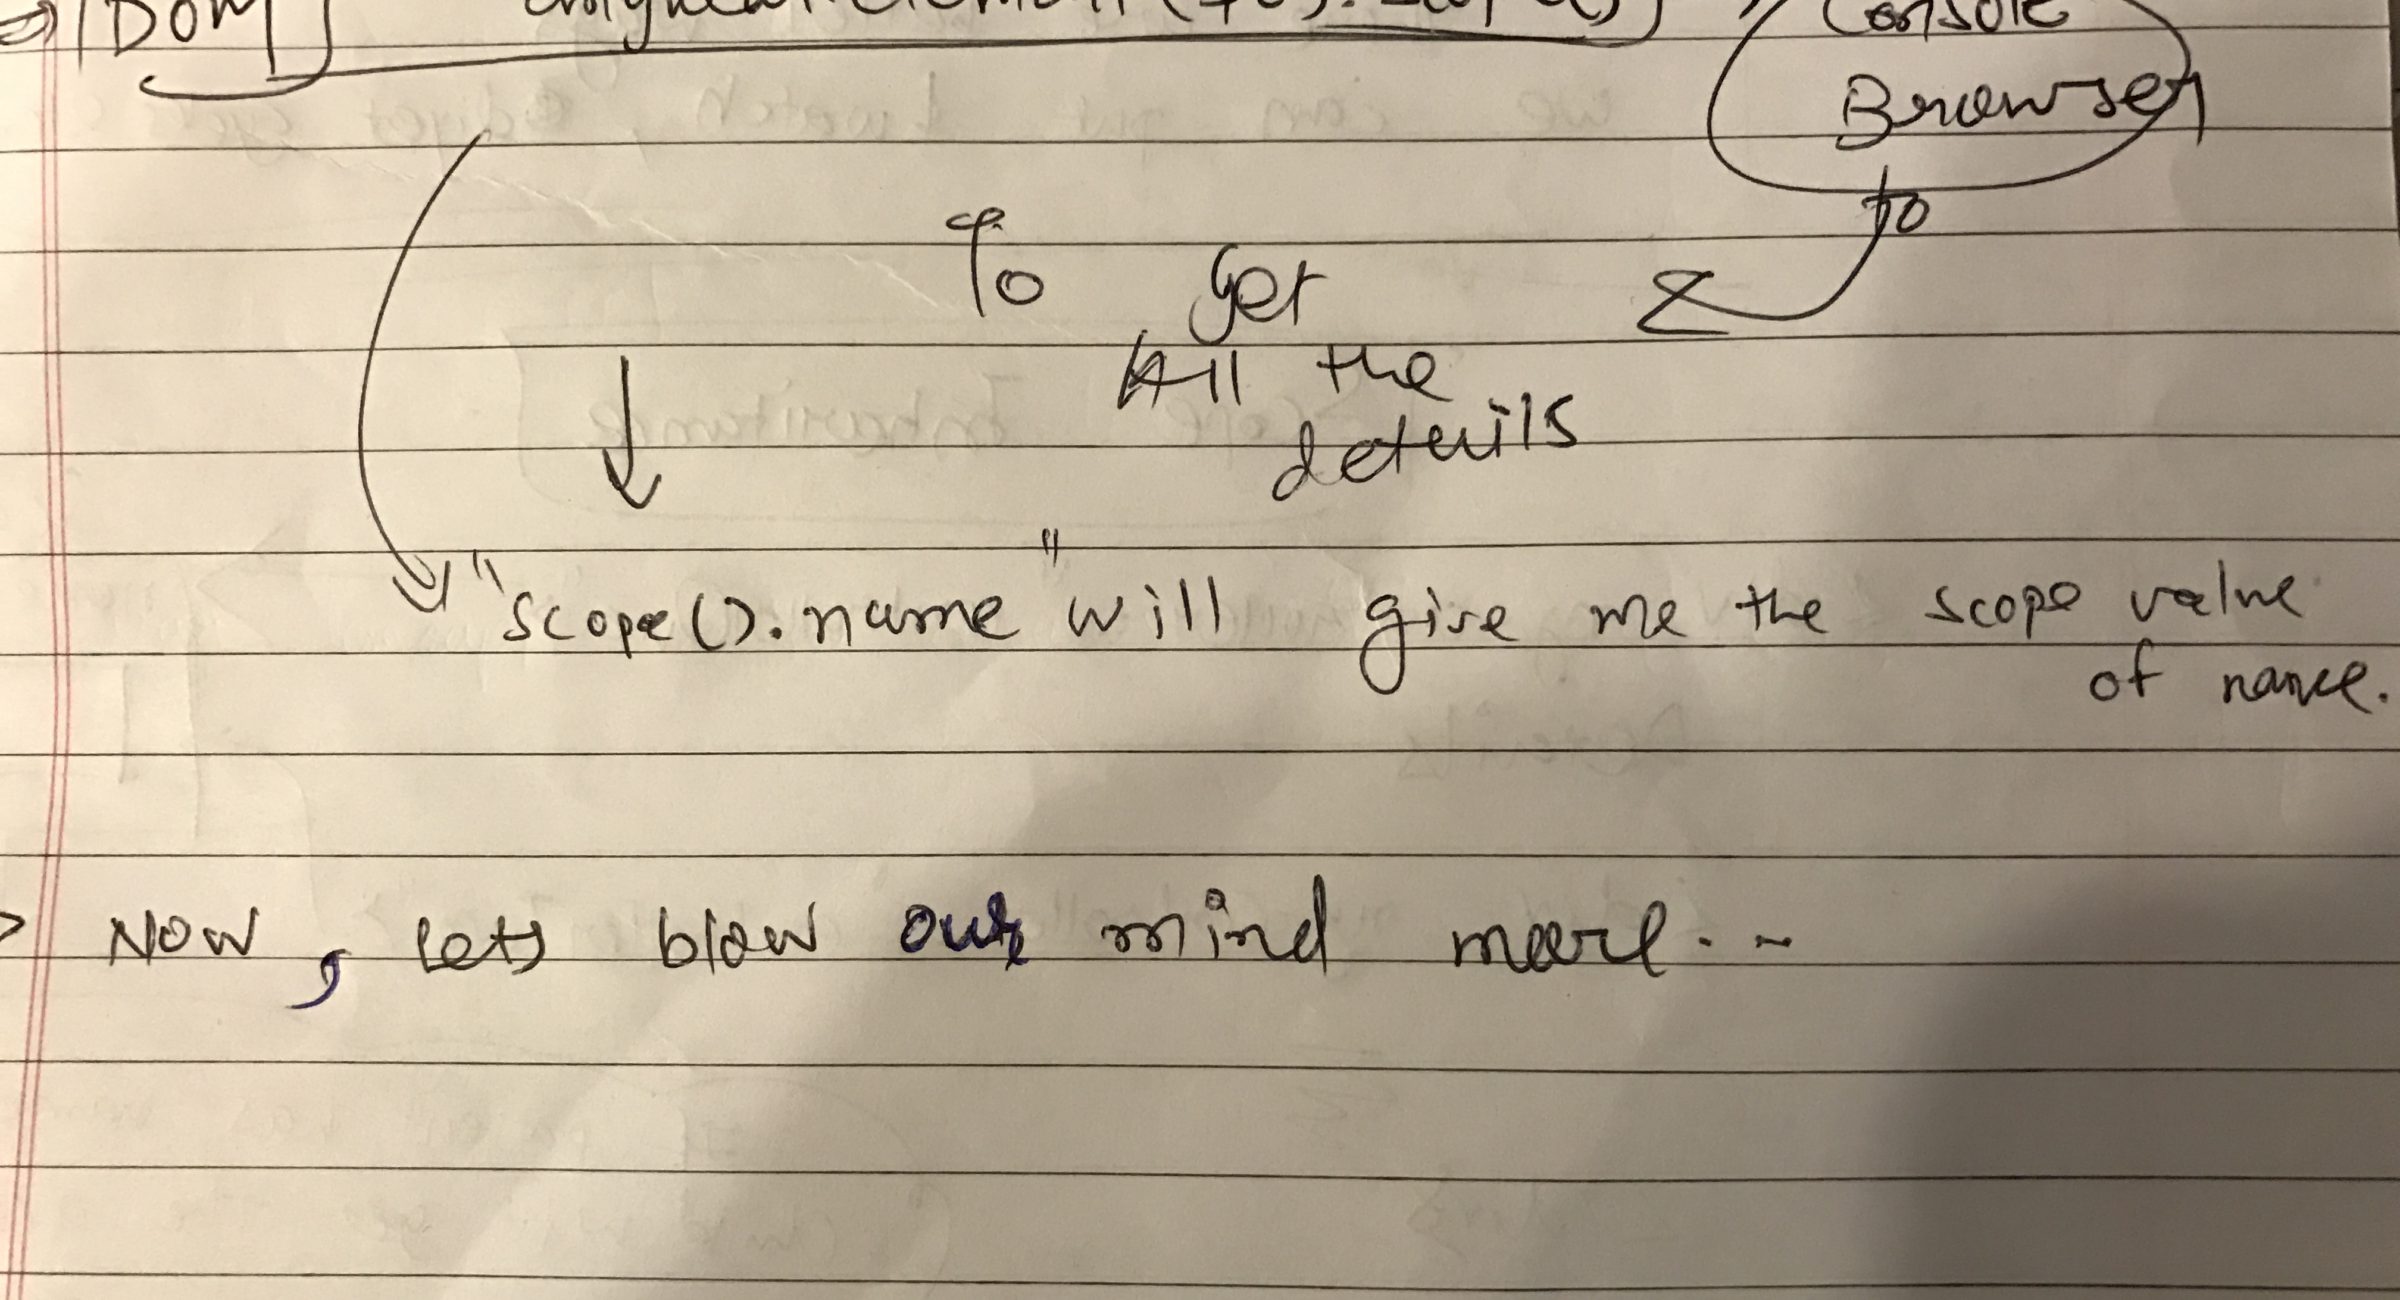 DOM Console
Browser
to
To get
All the
details
"scope().name" will give me the scope value
of name.
Now, lets blow our mind more...